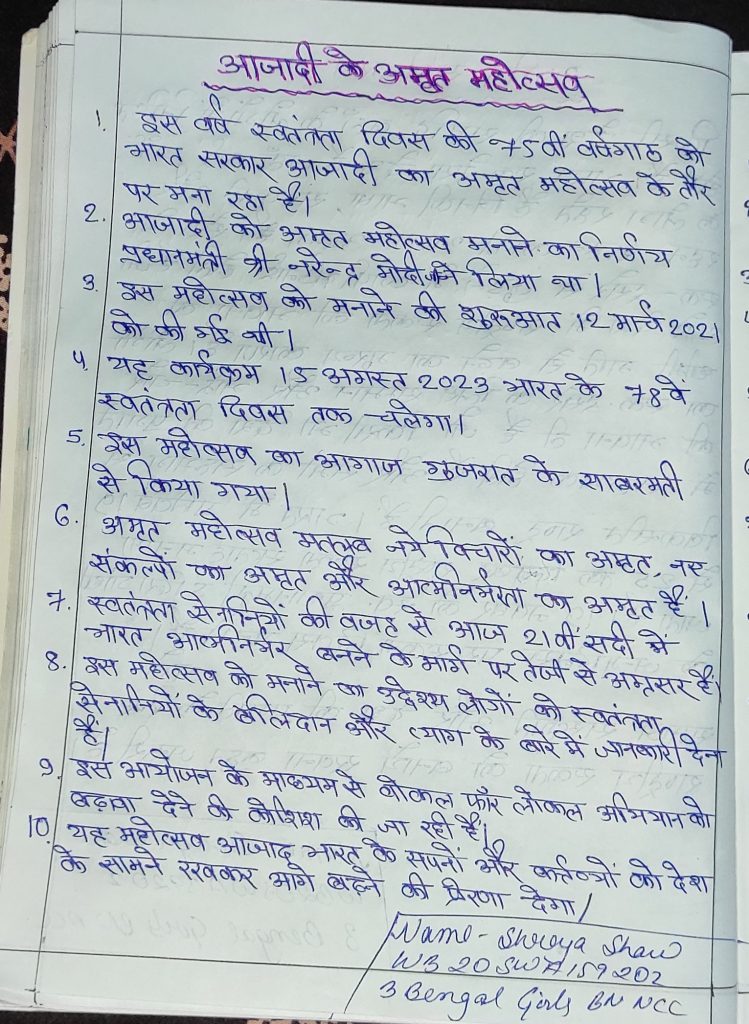 आजादी के अमृत महोत्सव
1. इस वर्ष स्वतंत्रता दिवस की 75वीं वर्षगाठ को
भारत सरकार आजादी का अमृत महोत्सव के तौर
पर मना रहा है।
2. आजादी को अमृत महोत्सव मनाने का निर्णय
प्रधानमंत्री श्री नरेन्द्र मोदी ने लिया था।
3. इस महोत्सव को मनाने की शुरुआत 12 मार्च 2021
को की गई थी।
4. यह कार्यक्रम 15 अगस्त 2023 भारत के 78वें
स्वतंत्रता दिवस तक चलेगा।
5. इस महोत्सव का आगाज गुजरात के साबरमती
से किया गया।
6. अमृत महोत्सव मतलब नये विचारों का अमृत, नए
संकल्पों का अमृत और आत्मनिर्भरता का अमृत है।
7. स्वतंत्रता सेनानियों की वजह से आज 21वीं सदी में
भारत आत्मनिर्भर बनने के मार्ग पर तेजी से अग्रसर है।
8. इस महोत्सव को मनाने का उद्देश्य लोगों को स्वतंत्रता
सेनानियों के बलिदान और त्याग के बारे में जानकारी देना
है।
9. इस आयोजन के माध्यम से वोकल फॉर लोकल अभियान को
बढ़ावा देने की कोशिश की जा रही है।
10. यह महोत्सव आजाद भारत के सपनों और कर्तव्यों को देश
के सामने रखकर आगे बढ़ने की प्रेरणा देगा।
Name - Shreya Shaw
WB20SWA159202
3 Bengal Girls BN NCC